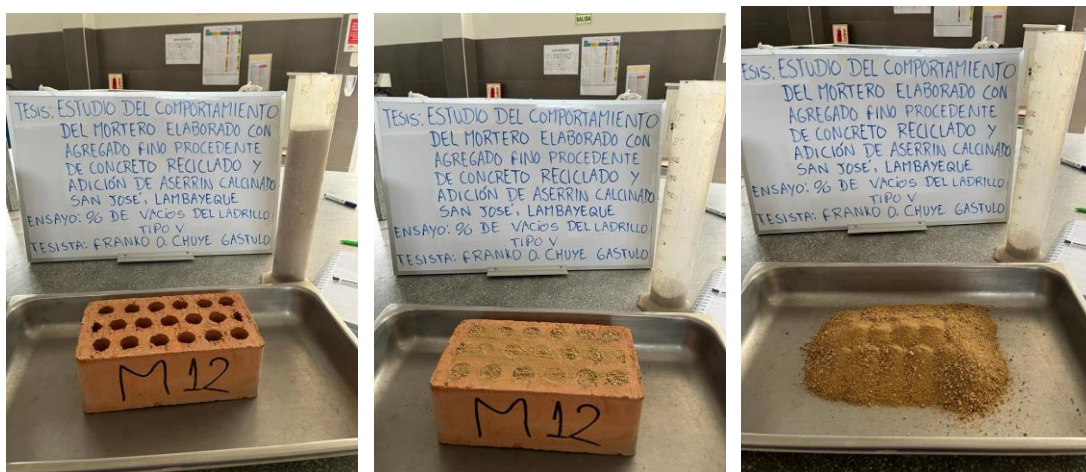 TESIS: ESTUDIO DEL COMPORTAMIENTO
DEL MORTERO ELABORADO CON
AGREGADO FINO PROCEDENTE
DE CONCRETO RECICLADO Y
ADICIÓN DE ASERRIN CALCINADO
SAN JOSÉ, LAMBAYEQUE
ENSAYO: % DE VACIOS DEL LADRILLO
TIPO V
TESISTA: FRANKO O. CHUYE GASTULO
M12
SALIDA
TESIS: ESTUDIO DEL COMPORTAMIENTO
DEL MORTERO ELABORADO CON
AGREGADO FINO PROCEDENTE
DE CONCRETO RECICLADO Y
ADICIÓN DE ASERRIN CALCINADO
SAN JOSÉ, LAMBAYEQUE
ENSAYO: % DE VACIOS DEL LADRILLO
TIPO V
TESISTA: FRANKO O. CHUYE GASTULO
M12
ESIS: ESTUDIO DEL COMPORTAMIENTO
DEL MORTERO ELABORADO CON
AGREGADO FINO PROCEDENTE
DE CONCRETO RECICLADO Y
ADICIÓN DE ASERRIN CALCINADO
SAN JOSÉ, LAMBAYEQUE
ENSAYO: % DE VACIOS DEL LADRILLO
TIPO V
TESISTA: FRANKO O. CHUYE GASTULO